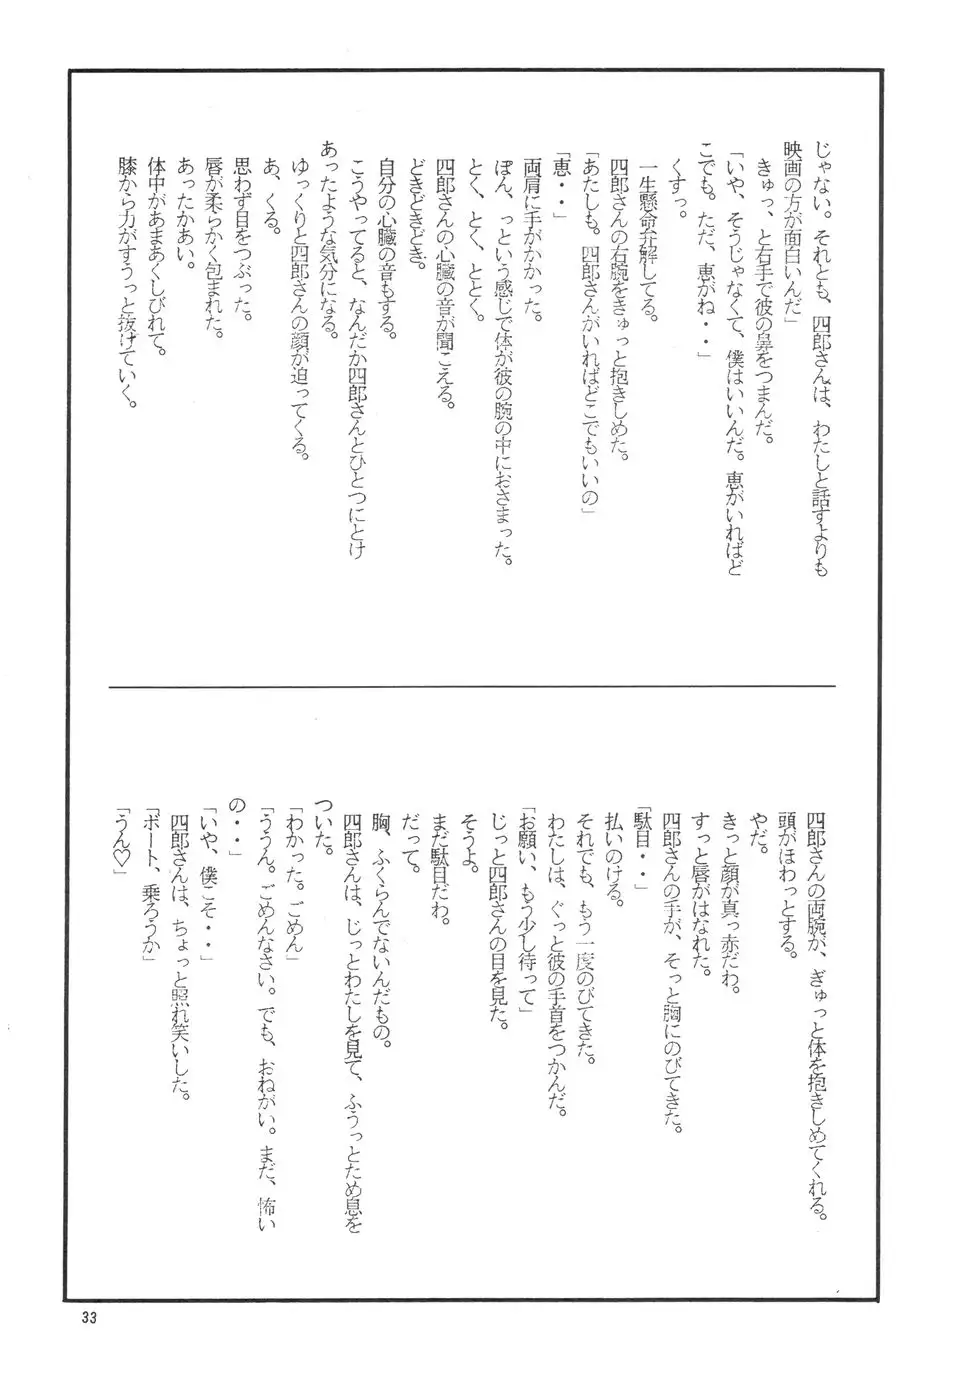 じゃない。それとも、四郎さんは、わたしと話すよりも
映画の方が面白いんだ」
きゅっ、と右手で彼の鼻をつまんだ。
「いや、そうじゃなくて、僕はいいんだ。恵がいればど
こでも。ただ、恵がね・・」
くすっ。
一生懸命弁解してる。
四郎さんの右腕をきゅっと抱きしめた。
「あたしも。四郎さんがいればどこでもいいの」
「恵・・」
両肩に手がかかった。
ぽん、っという感じで体が彼の腕の中におさまった。
とく、とく、ととく。
四郎さんの心臓の音が聞こえる。
どきどきどき。
自分の心臓の音もする。
こうやってると、なんだか四郎さんとひとつにとけ
あったような気分になる。
ゆっくりと四郎さんの顔が迫ってくる。
あ、くる。
思わず目をつぶった。
唇が柔らかく包まれた。
あったかあい。
体中があまあくしびれて。
膝から力がすうっと抜けていく。
四郎さんの両腕が、ぎゅっと体を抱きしめてくれる。
頭がほわっとする。
やだ。
きっと顔が真っ赤だわ。
すっと唇がはなれた。
四郎さんの手が、そっと胸にのびてきた。
「駄目・・」
払いのける。
それでも、もう一度のびてきた。
わたしは、ぐっと彼の手首をつかんだ。
「お願い、もう少し待って」
じっと四郎さんの目を見た。
そうよ。
まだ駄目だわ。
だって。
胸、ふくらんでないんだもの。
四郎さんは、じっとわたしを見て、ふうっとため息を
ついた。
「わかった。ごめん」
「ううん。ごめんなさい。でも、おねがい。まだ、怖い
の・・」
「いや、僕こそ・・」
四郎さんは、ちょっと照れ笑いした。
「ボート、乗ろうか」
「うん♡」
33